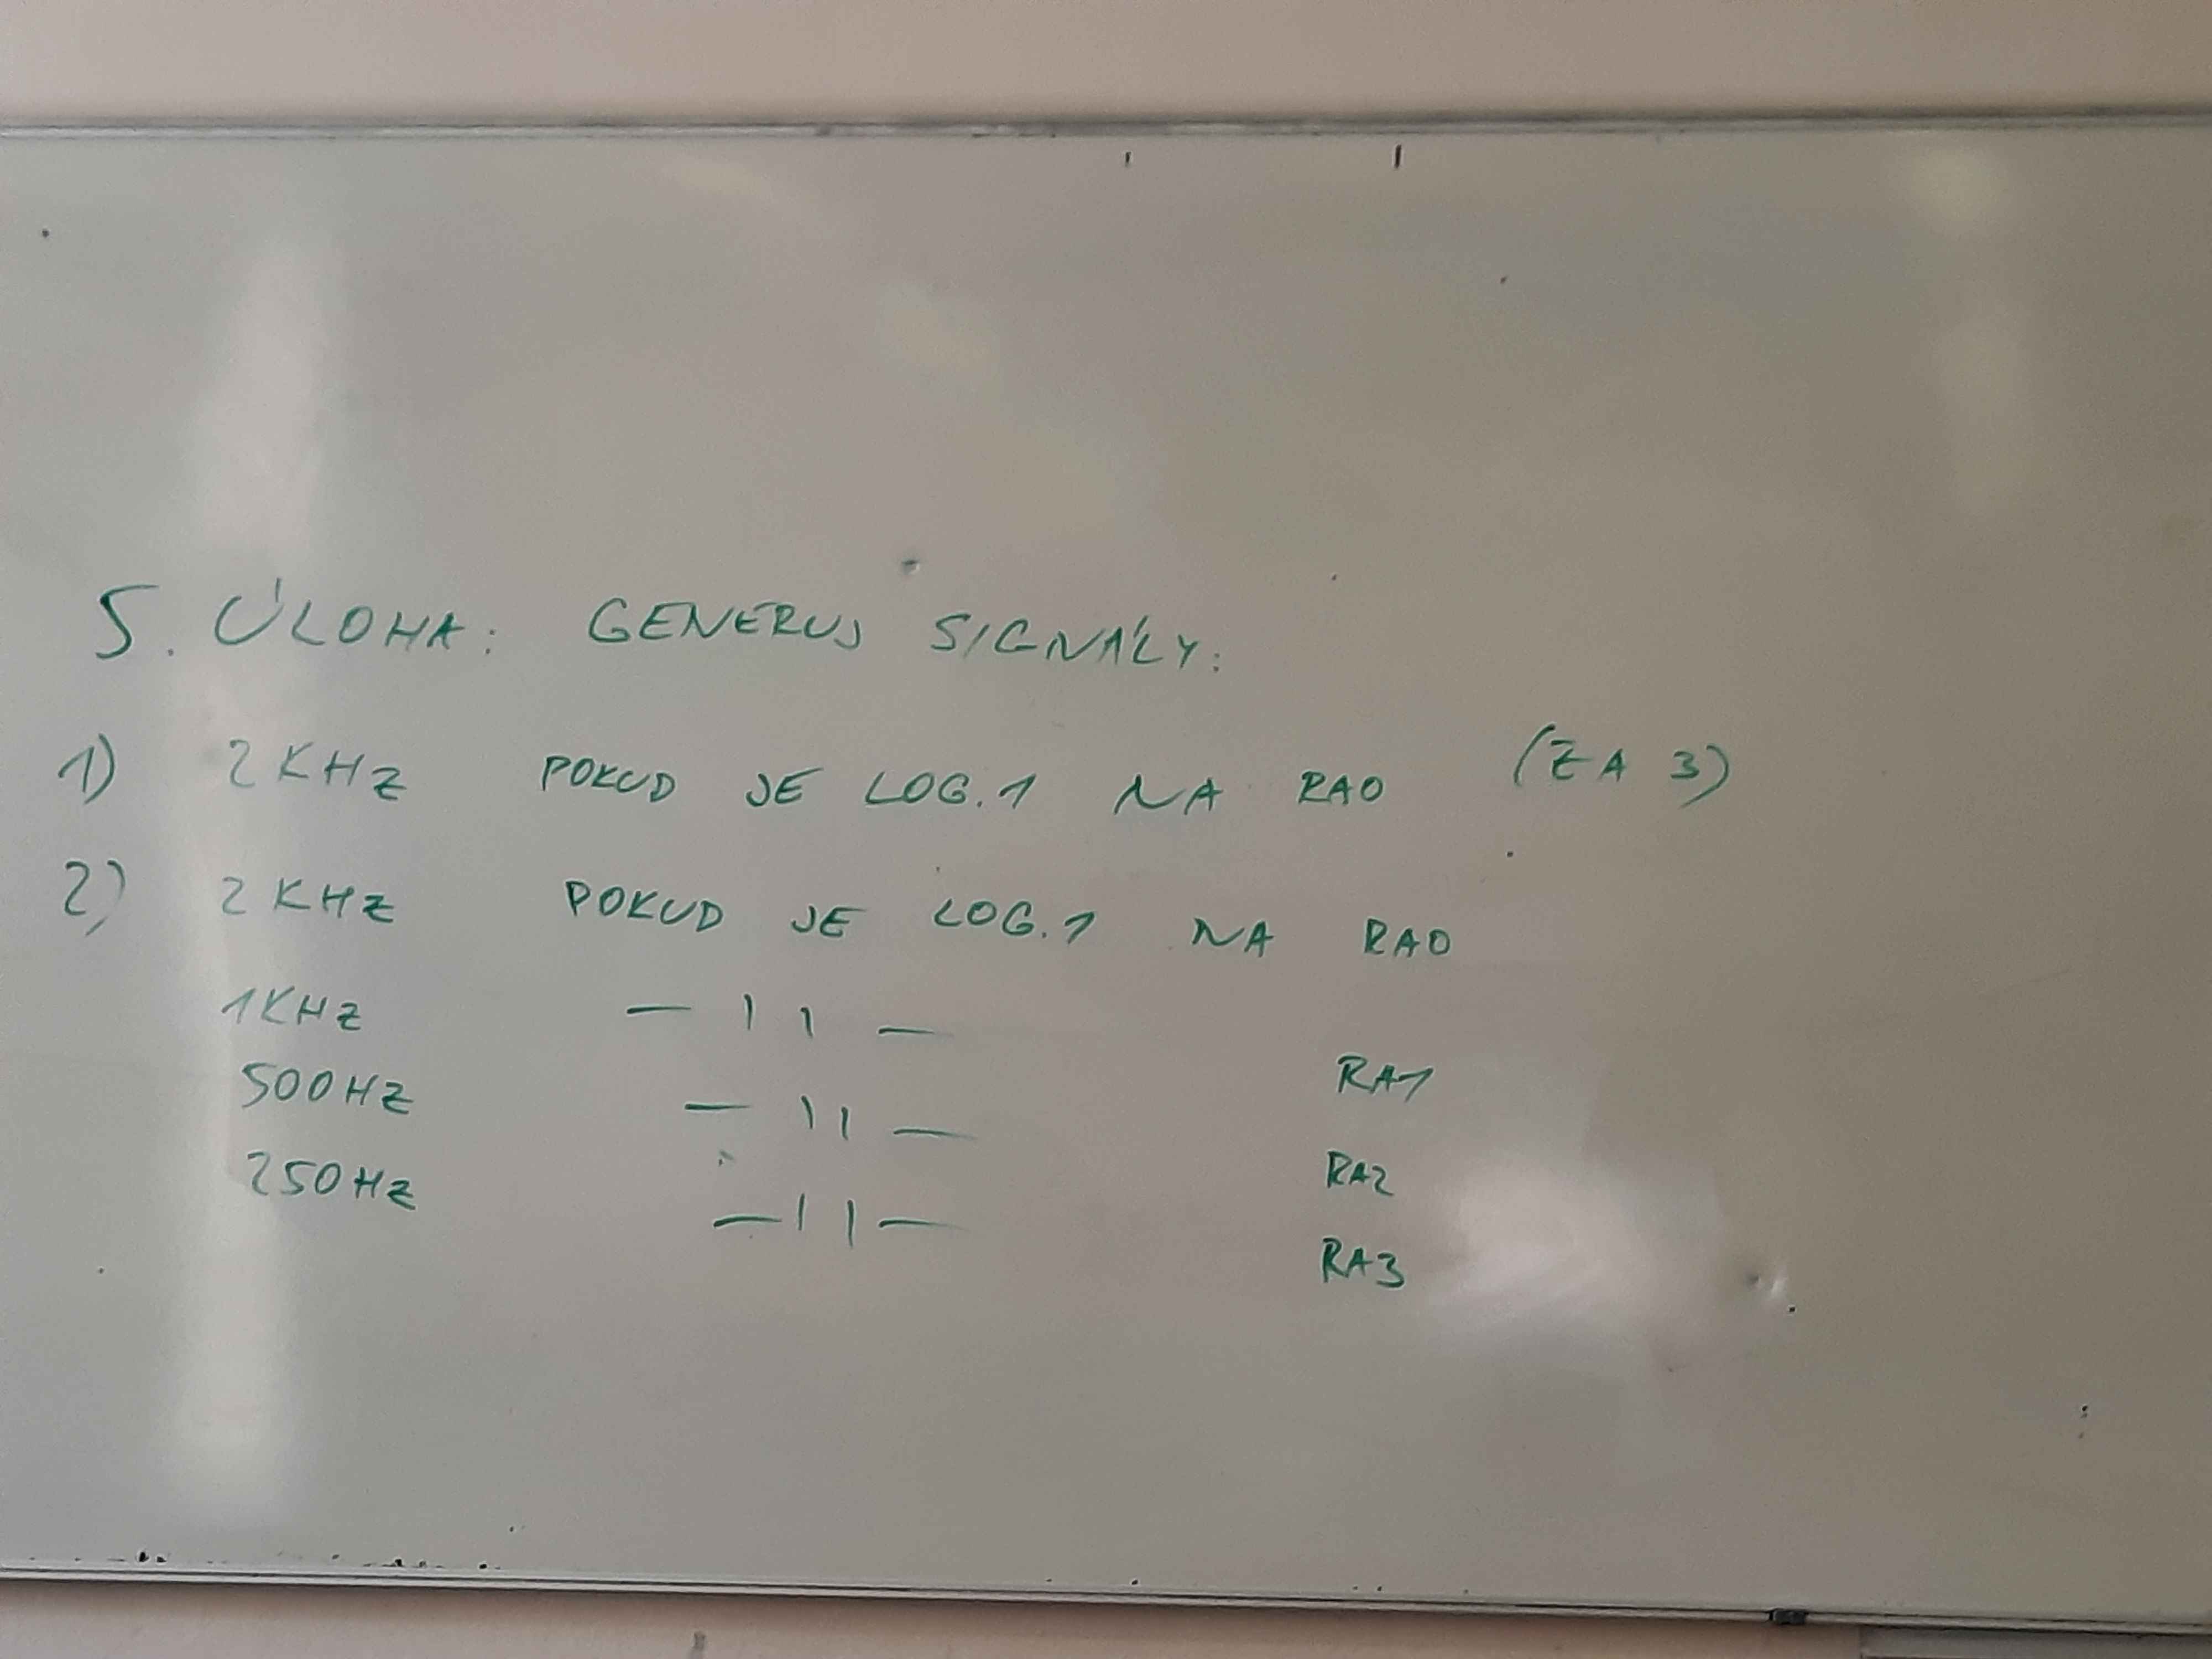 5. ÚLOHA: GENERUJ SIGNÁLY:
1) 2KHZ POKUD JE LOG.1 NA RA0 (ZA 3)
2) 2KHZ POKUD JE LOG.1 NA RA0
1KHZ — 11 — RA1
500HZ — 11 — RA2
250HZ — 11 — RA3